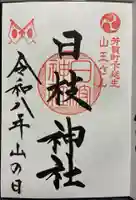 芳賀町下延生
山王さん
日枝神社
令和八年山の日